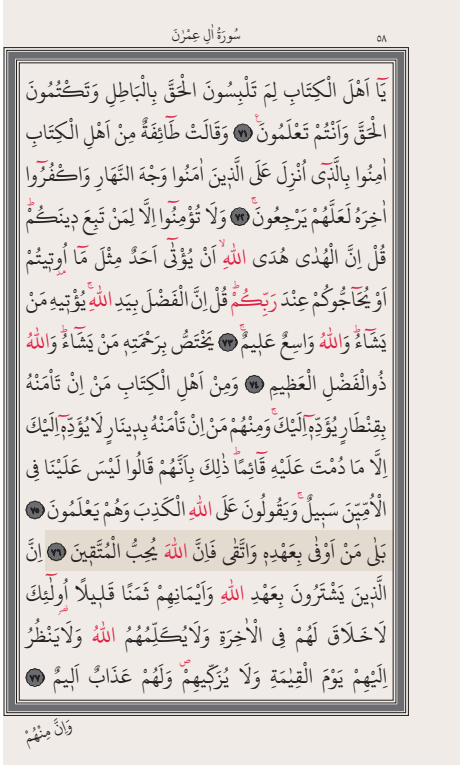 سُورَةُ اٰلِ عِمْرٰنَ ٥٨
يَٓا اَهْلَ الْكِتَابِ لِمَ تَلْبِسُونَ الْحَقَّ بِالْبَاطِلِ وَتَكْتُمُونَ
الْحَقَّ وَاَنْتُمْ تَعْلَمُونَ۟ ٧١ وَقَالَتْ طَٓائِفَةٌ مِنْ اَهْلِ الْكِتَابِ
اٰمِنُوا بِالَّذ۪ٓي اُنْزِلَ عَلَى الَّذ۪ينَ اٰمَنُوا وَجْهَ النَّهَارِ وَاكْفُرُٓوا
اٰخِرَهُ لَعَلَّهُمْ يَرْجِعُونَۚ ٧٢ وَلَا تُؤْمِنُٓوا اِلَّا لِمَنْ تَبِعَ د۪ينَكُمْۜ
قُلْ اِنَّ الْهُدٰى هُدَى اللّٰهِۙ اَنْ يُؤْتٰٓى اَحَدٌ مِثْلَ مَٓا اُو۫ت۪يتُمْ
اَوْ يُحَٓاجُّوكُمْ عِنْدَ رَبِّكُمْۜ قُلْ اِنَّ الْفَضْلَ بِيَدِ اللّٰهِۚ يُؤْت۪يهِ مَنْ
يَشَٓاءُۜ وَاللّٰهُ وَاسِعٌ عَل۪يمٌۚ ٧٣ يَخْتَصُّ بِرَحْمَتِه۪ مَنْ يَشَٓاءُۜ وَاللّٰهُ
ذُوالْفَضْلِ الْعَظ۪يمِ ٧٤ وَمِنْ اَهْلِ الْكِتَابِ مَنْ اِنْ تَأْمَنْهُ
بِقِنْطَارٍ يُؤَدِّه۪ٓ اِلَيْكَۚ وَمِنْهُمْ مَنْ اِنْ تَأْمَنْهُ بِد۪ينَارٍ لَا يُؤَدِّه۪ٓ اِلَيْكَ
اِلَّا مَا دُمْتَ عَلَيْهِ قَٓائِمًاۜ ذٰلِكَ بِاَنَّهُمْ قَالُوا لَيْسَ عَلَيْنَا فِي
الْاُمِّيّ۪نَ سَب۪يلٌۚ وَيَقُولُونَ عَلَى اللّٰهِ الْكَذِبَ وَهُمْ يَعْلَمُونَ ٧٥
بَلٰى مَنْ اَوْفٰى بِعَهْدِه۪ وَاتَّقٰى فَاِنَّ اللّٰهَ يُحِبُّ الْمُتَّق۪ينَ ٧٦ اِنَّ
الَّذ۪ينَ يَشْتَرُونَ بِعَهْدِ اللّٰهِ وَاَيْمَانِهِمْ ثَمَنًا قَل۪يلًا اُو۬لٰٓئِكَ
لَا خَلَاقَ لَهُمْ فِي الْاٰخِرَةِ وَلَا يُكَلِّمُهُمُ اللّٰهُ وَلَا يَنْظُرُ
اِلَيْهِمْ يَوْمَ الْقِيٰمَةِ وَلَا يُزَكّ۪يهِمْۖ وَلَهُمْ عَذَابٌ اَل۪يمٌ ٧٧
وَاِنَّ مِنْهُمْ